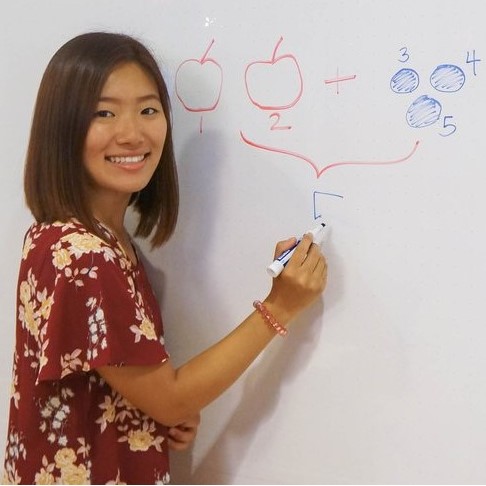 1 2 + 3 4 5